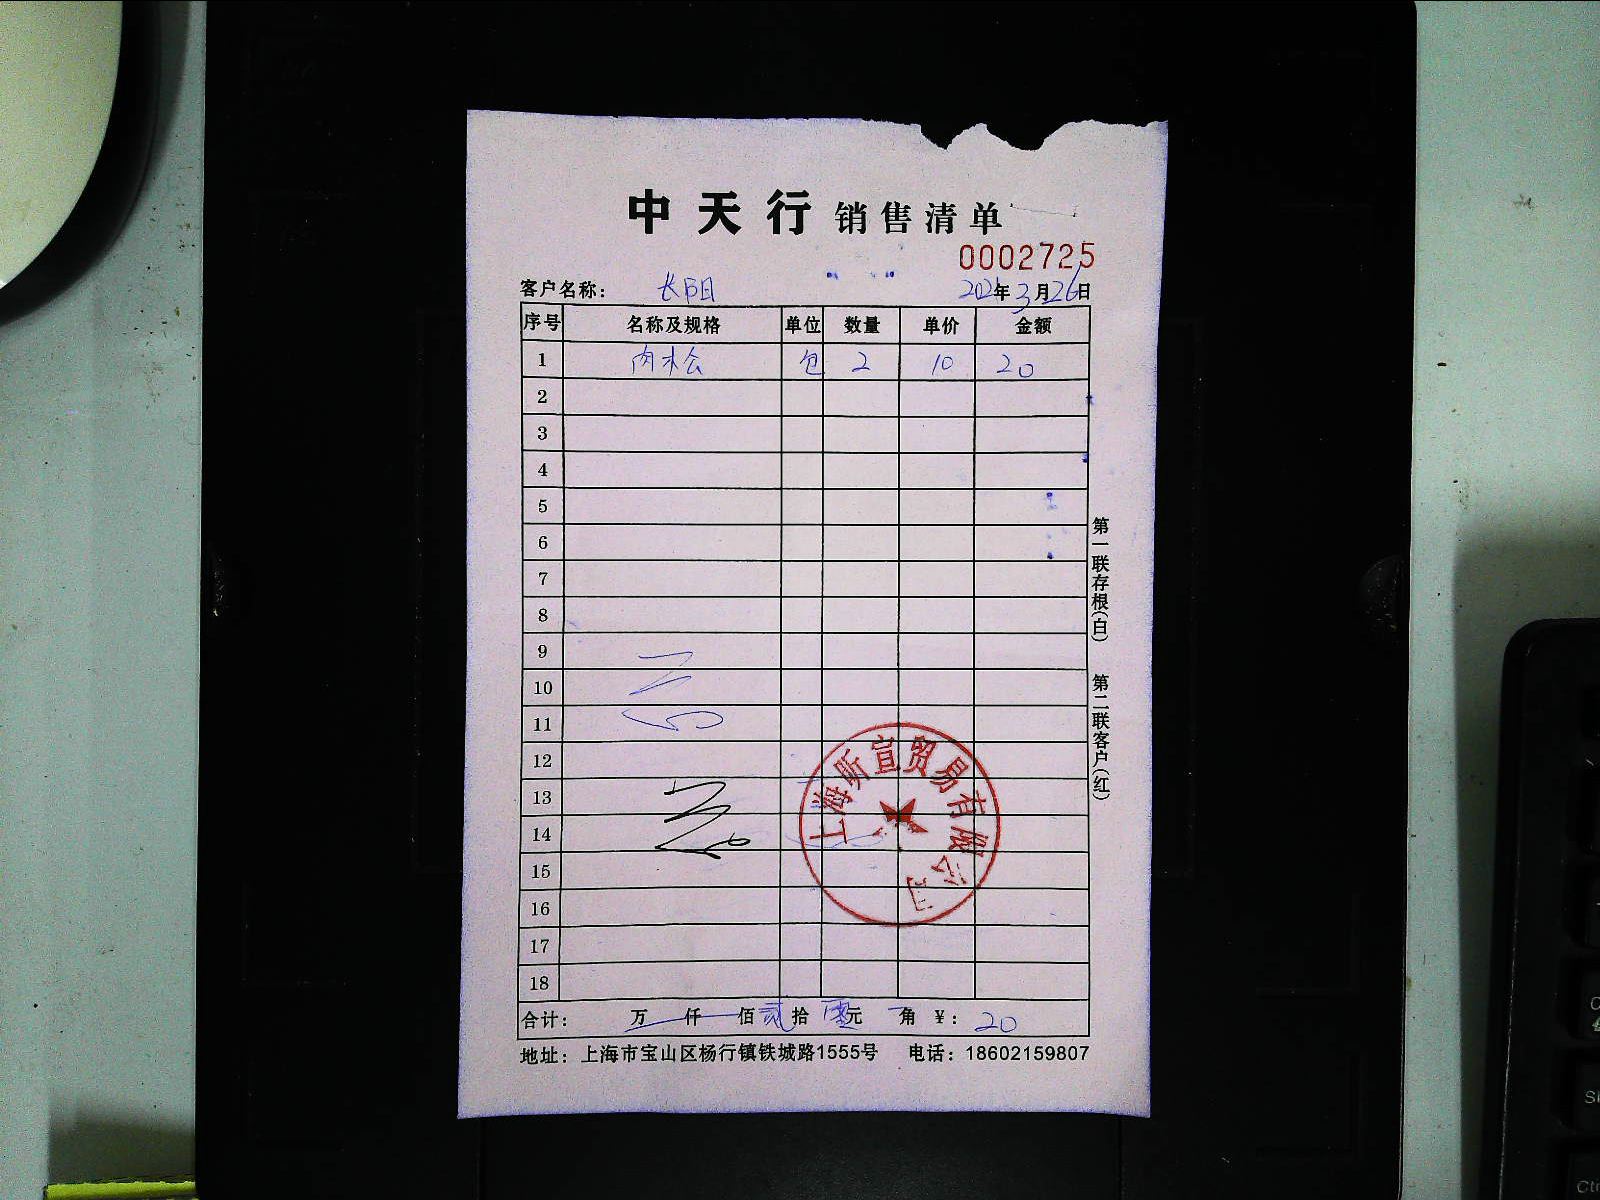 中天行 销售清单
0002725
客户名称： 长阳 2021年3月26日
序号 名称及规格 单位 数量 单价 金额
1 肉松 包 2 10 20
2
3
4
5
6
7
8
9
10
11
12
13
14
15
16
17
18
上海昕宣贸易有限公司
合计： 万 仟 佰 贰拾 零元 角 ￥： 20
地址：上海市宝山区杨行镇铁城路1555号 电话：18602159807
第一联存根(白) 第二联客户(红)